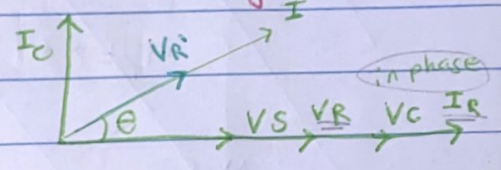 I
IC VR
in phase
θ VS VR VC IR